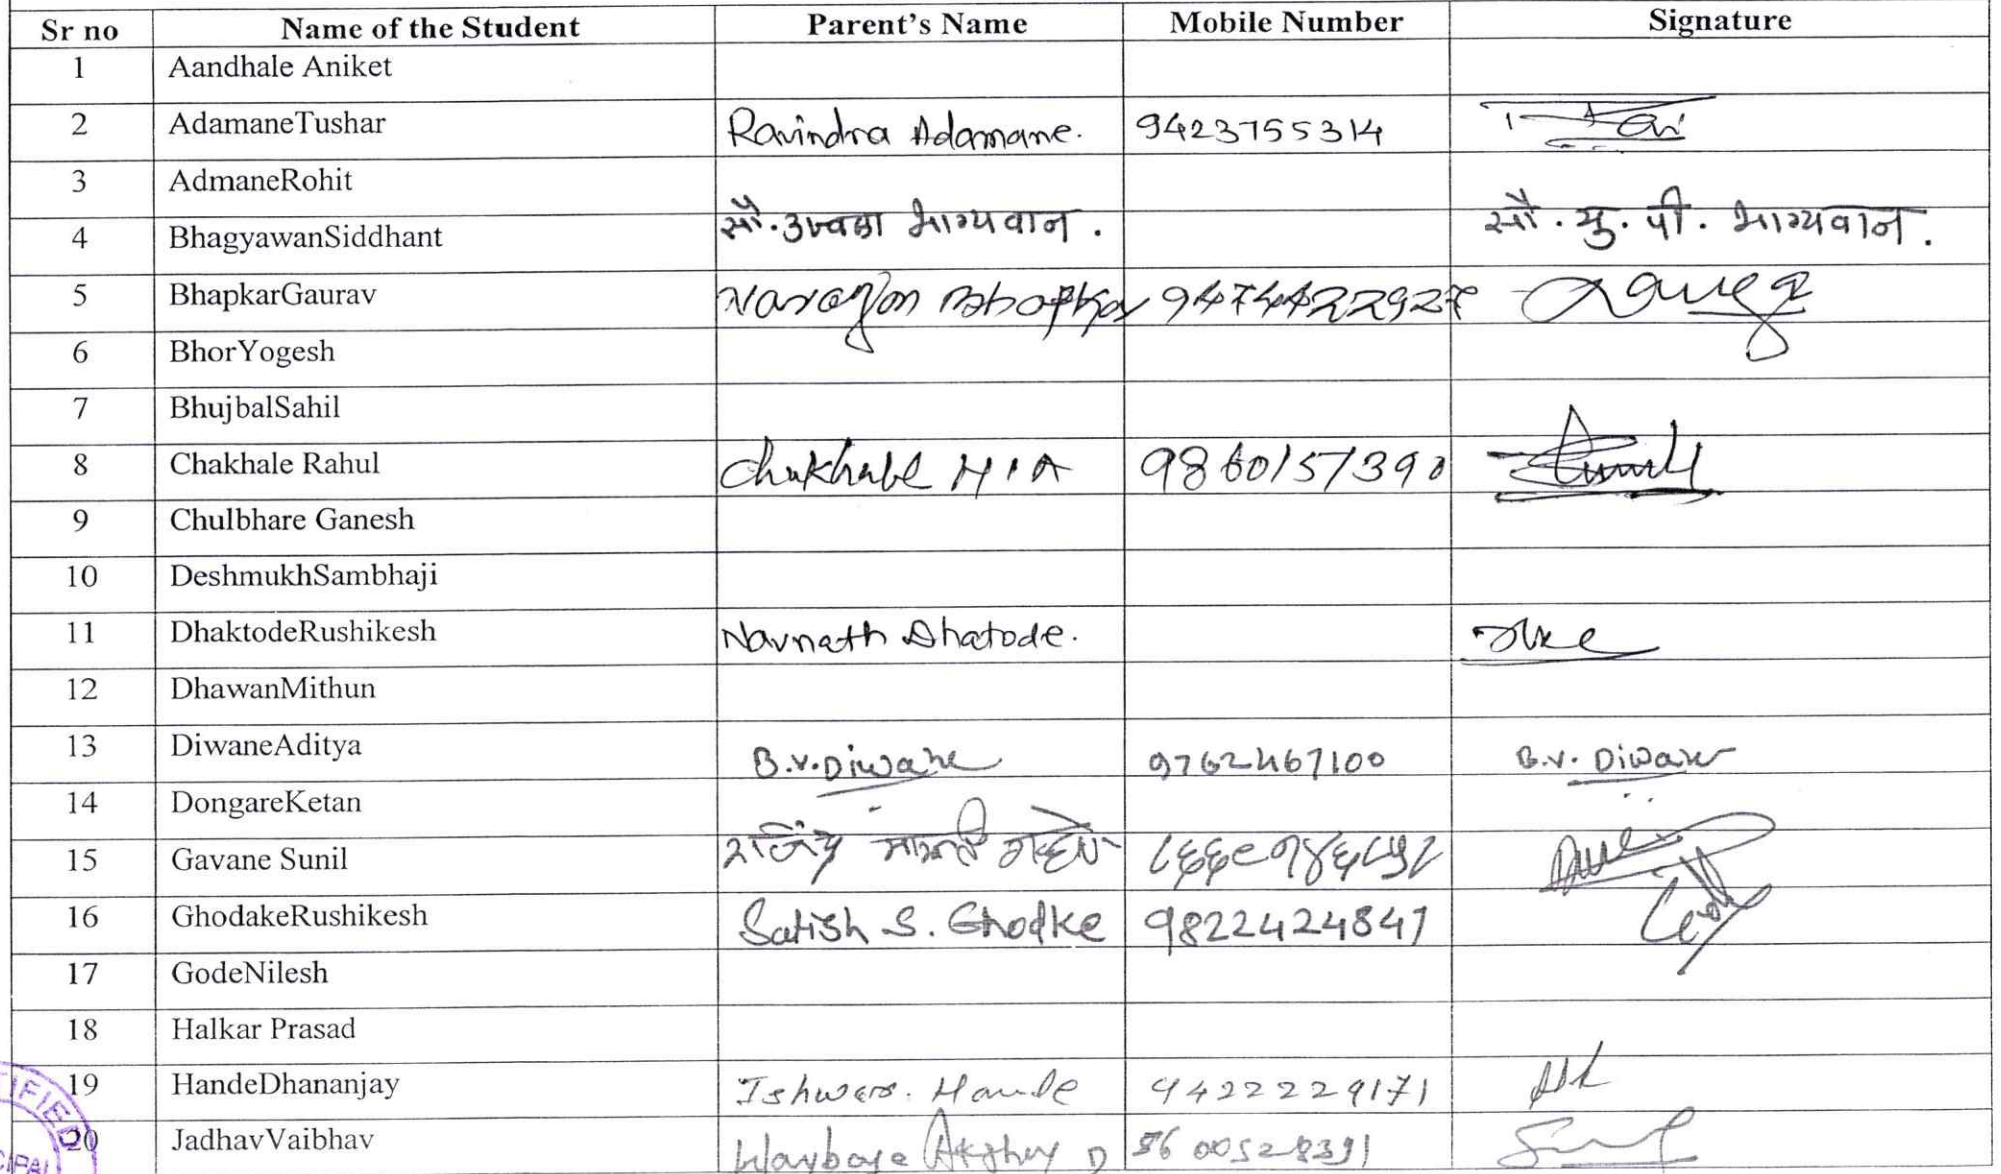 Sr no Name of the Student Parent's Name Mobile Number Signature
1 Aandhale Aniket
2 AdamaneTushar Ravindra Adamane. 9423755314
3 AdmaneRohit
4 BhagyawanSiddhant सौ. भाग्यवान. सौ. मु. पी. भाग्यवान.
5 BhapkarGaurav Narayan Bhapkar
6 BhorYogesh
7 BhujbalSahil
8 Chakhale Rahul Chakhale H.A 9860157390
9 Chulbhare Ganesh
10 DeshmukhSambhaji
11 DhaktodeRushikesh Navnath Dhatode.
12 DhawanMithun
13 DiwaneAditya B.V. Diwane 9762467100 B.V. Diwane
14 DongareKetan
15 Gavane Sunil
16 GhodakeRushikesh Satish S. Ghodke 9822424847
17 GodeNilesh
18 Halkar Prasad
19 HandeDhananjay Ishwar. Hande 9422229171
20 JadhavVaibhav Akshay D